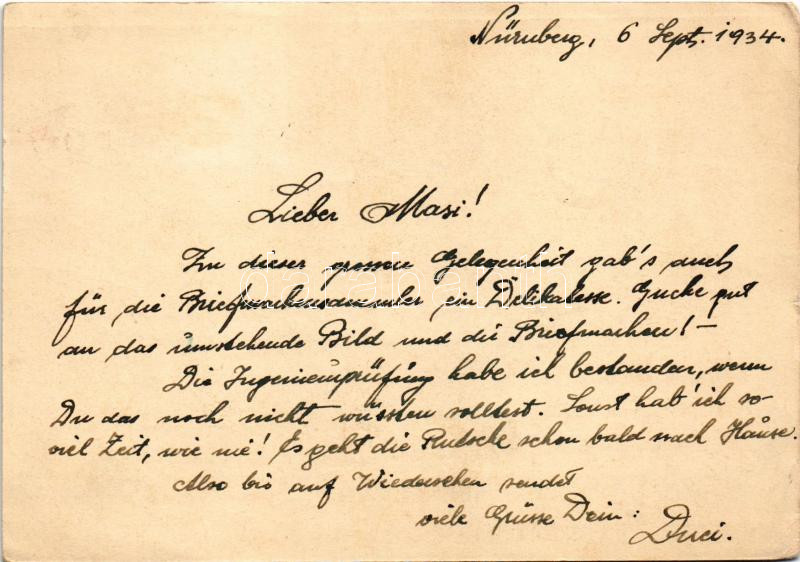 Nürnberg, 6 Sept. 1934.
Lieber Masi!
Zu dieser grossen Gelegenheit gab's auch
für die Briefmarkensammler ein Delikatesse. Gucke gut
an das umstehende Bild und die Briefmarken! –
Die Ingenieurprüfung habe ich bestanden, wenn
Du das noch nicht wüssten solltest. Sonst hab' ich so-
viel Zeit, wie nie! Es geht die Rutsche schon bald nach Hause.
Also bis auf Wiedersehen sendet
viele Grüsse Dein:
Duci.